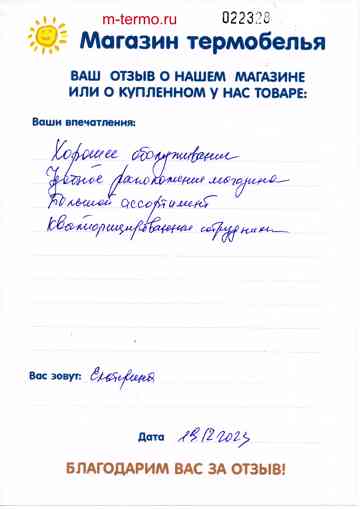 m-termo.ru
022328
Магазин термобелья
ВАШ ОТЗЫВ О НАШЕМ МАГАЗИНЕ
ИЛИ О КУПЛЕННОМ У НАС ТОВАРЕ:
Ваши впечатления:
Хорошее обслуживание
Удобное расположение магазина
Большой ассортимент
Квалифицированные сотрудники
Вас зовут: Екатерина
Дата 19/12 2023
БЛАГОДАРИМ ВАС ЗА ОТЗЫВ!